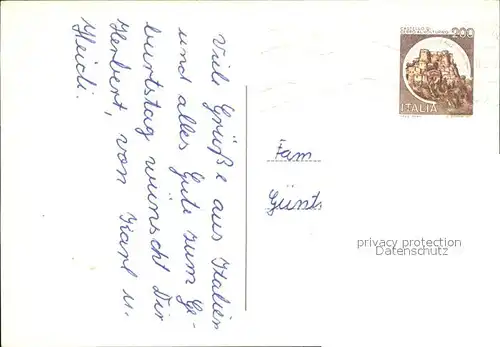 Viele Grüße aus Italien
und alles Gute zum Ge-
burtstag wünscht Dir
Herbert, von Karl u.
Heidi.
Fam
Günts
200
ITALIA
privacy protection
Datenschutz